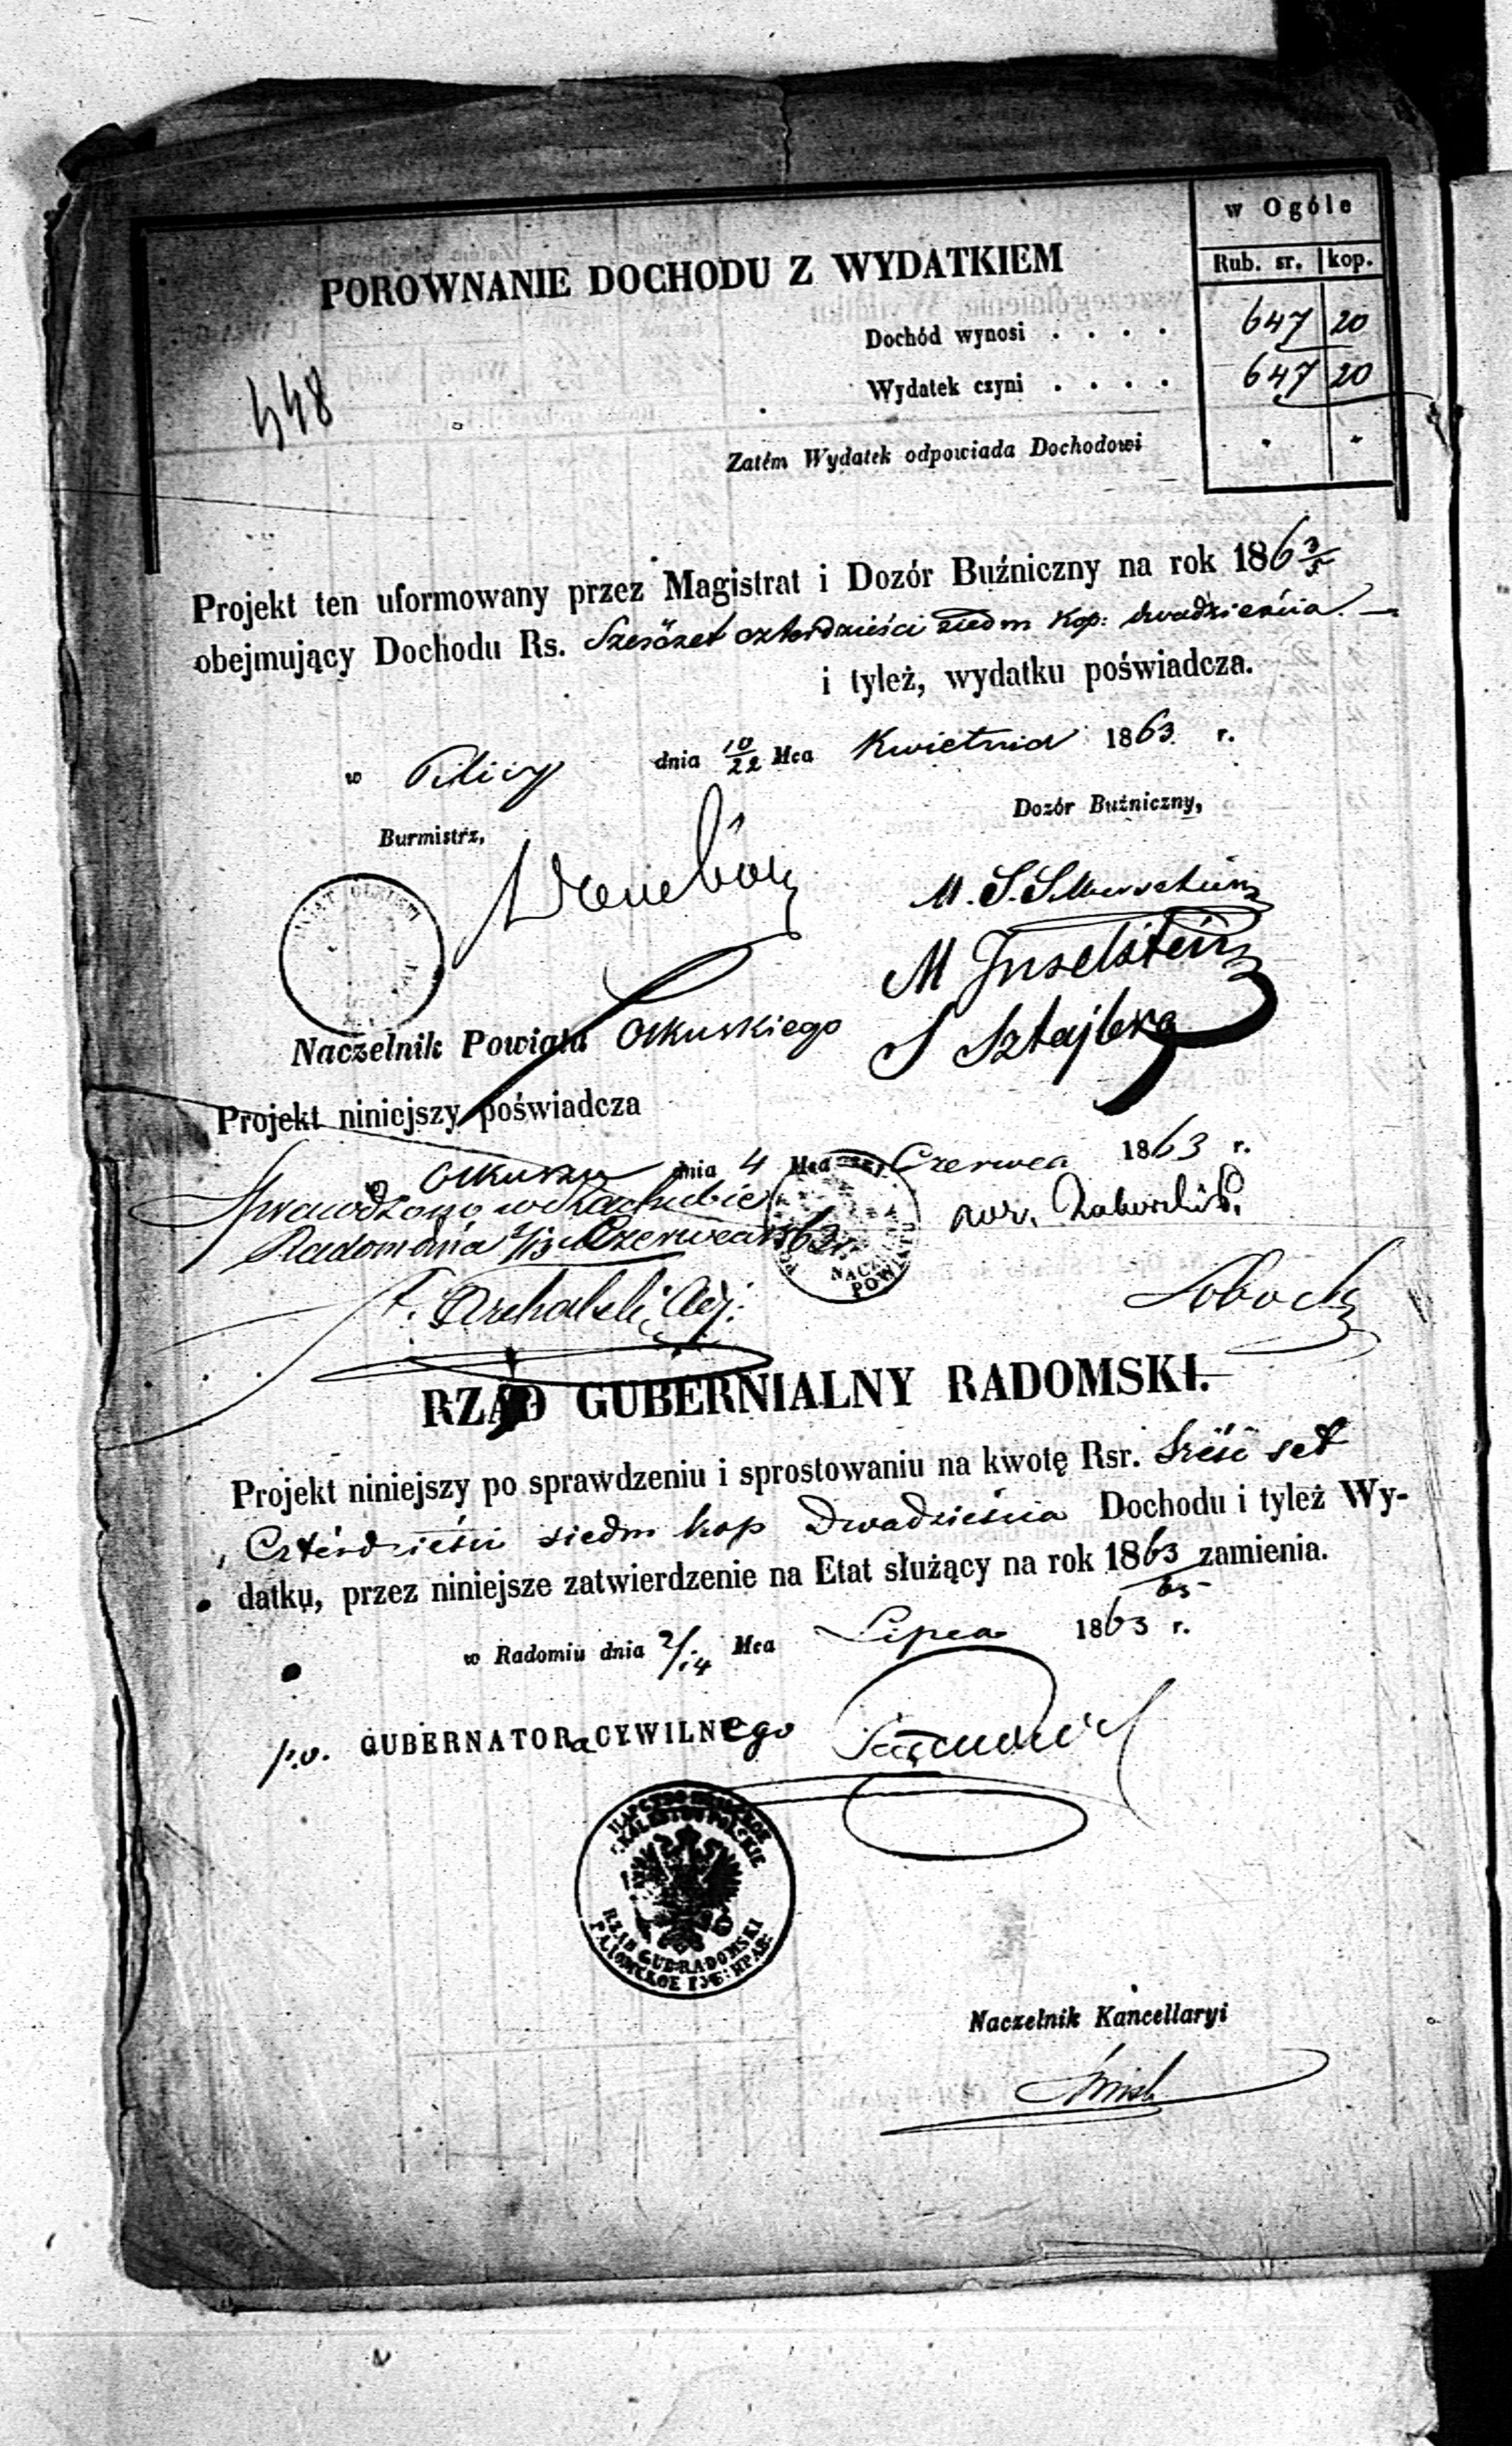 w Ogóle
Rub. sr. kop.
POROWNANIE DOCHODU Z WYDATKIEM
Dochód wynosi . . . . 647 20
Wydatek czyni . . . . 647 20
448
Zatém Wydatek odpowiada Dochodowi . .
Projekt ten uformowany przez Magistrat i Dozór Buźniczny na rok 1863/5
obejmujący Dochodu Rs. Sześćset czterdzieści siedm kop: dwadzieścia.—
i tyleż, wydatku poświadcza.
w Pilicy dnia 10/22 Mca Kwietnia 1863 r.
Dozór Buźniczny,
Burmistrz,
M
M Inselstein
S Sztajberg
Naczelnik Powiatu Olkuskiego
Projekt niniejszy poświadcza
w Olkuszu dnia 4 Mca Czerwca 1863 r.
Sprawdzono w
Radom dnia 1/13 Czerwca 1863 r.
NACZ
POWIATU
Adj:
RZĄD GUBERNIALNY RADOMSKI.
Projekt niniejszy po sprawdzeniu i sprostowaniu na kwotę Rsr. Sześć set
Czterdzieści siedm kop Dwadzieścia Dochodu i tyleż Wy-
datku, przez niniejsze zatwierdzenie na Etat służący na rok 1863/65 zamienia.
w Radomiu dnia 2/14 Mca Lipca 1863 r.
p.o. GUBERNATORa CYWILNego
KRÓLESTWO POLSKIE
RZĄD GUB: RADOMSKI
Naczelnik Kancellaryi